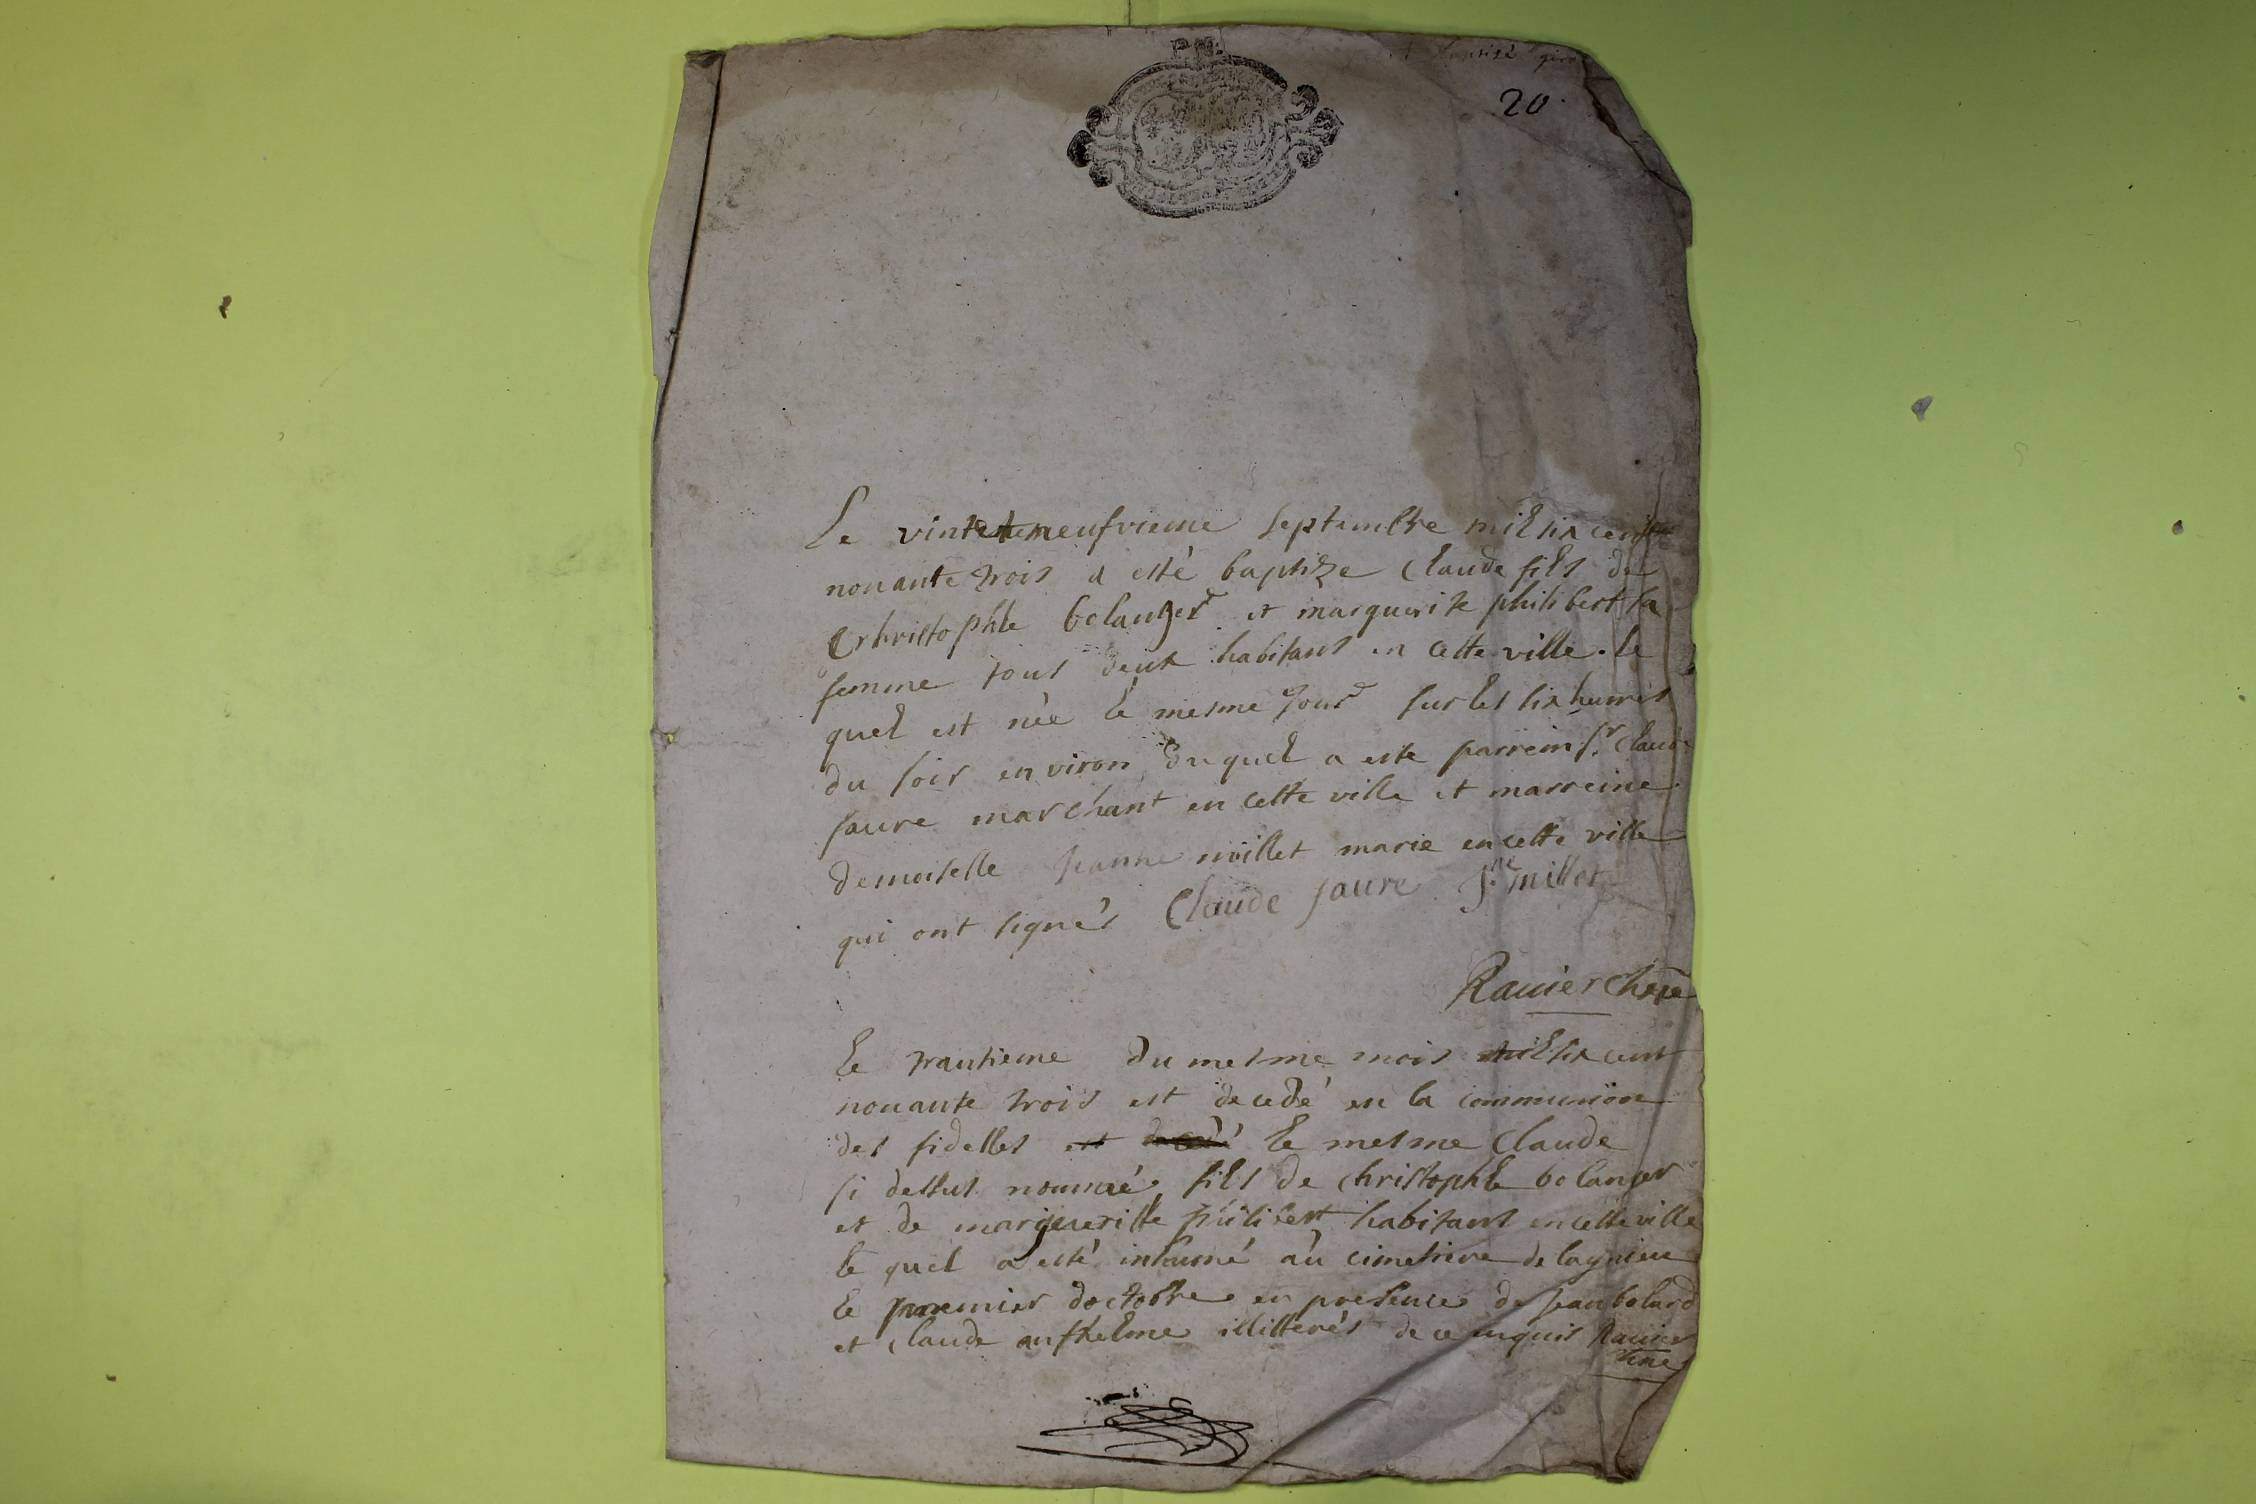 20
Le vintetneufvieme septembre mil six cent
nonante trois a esté baptize Claude fils de
Christophle bolanger et marguerite philibert sa
femme tous deux habitans en cette ville. le
quel est née le mesme jour sur les six heures
du soir environ duquel a este parrein sr. Claude
faure marchant en cette ville et marreine
demoiselle Jeanne millet marie en cette ville
qui ont signés Claude faure Jne millet
Rauier
Le trantieme du mesme mois mil six cent
nonante trois est decedé en la communion
des fidelles est decedé le mesme Claude
si dessus nommé fils de Christophle bolanger
et de margueritte philibert habitans en cette ville
le quel a esté inhumé au cimetiere de lagnieu
le premier doctobre en presence de Jean bolard
et Claude anthelme illitterés de ce enquis Rauier